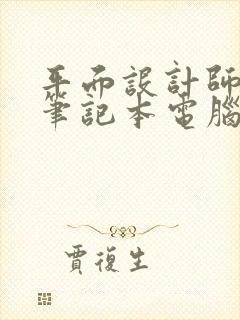 平面設計師
筆記本電腦
賈復生